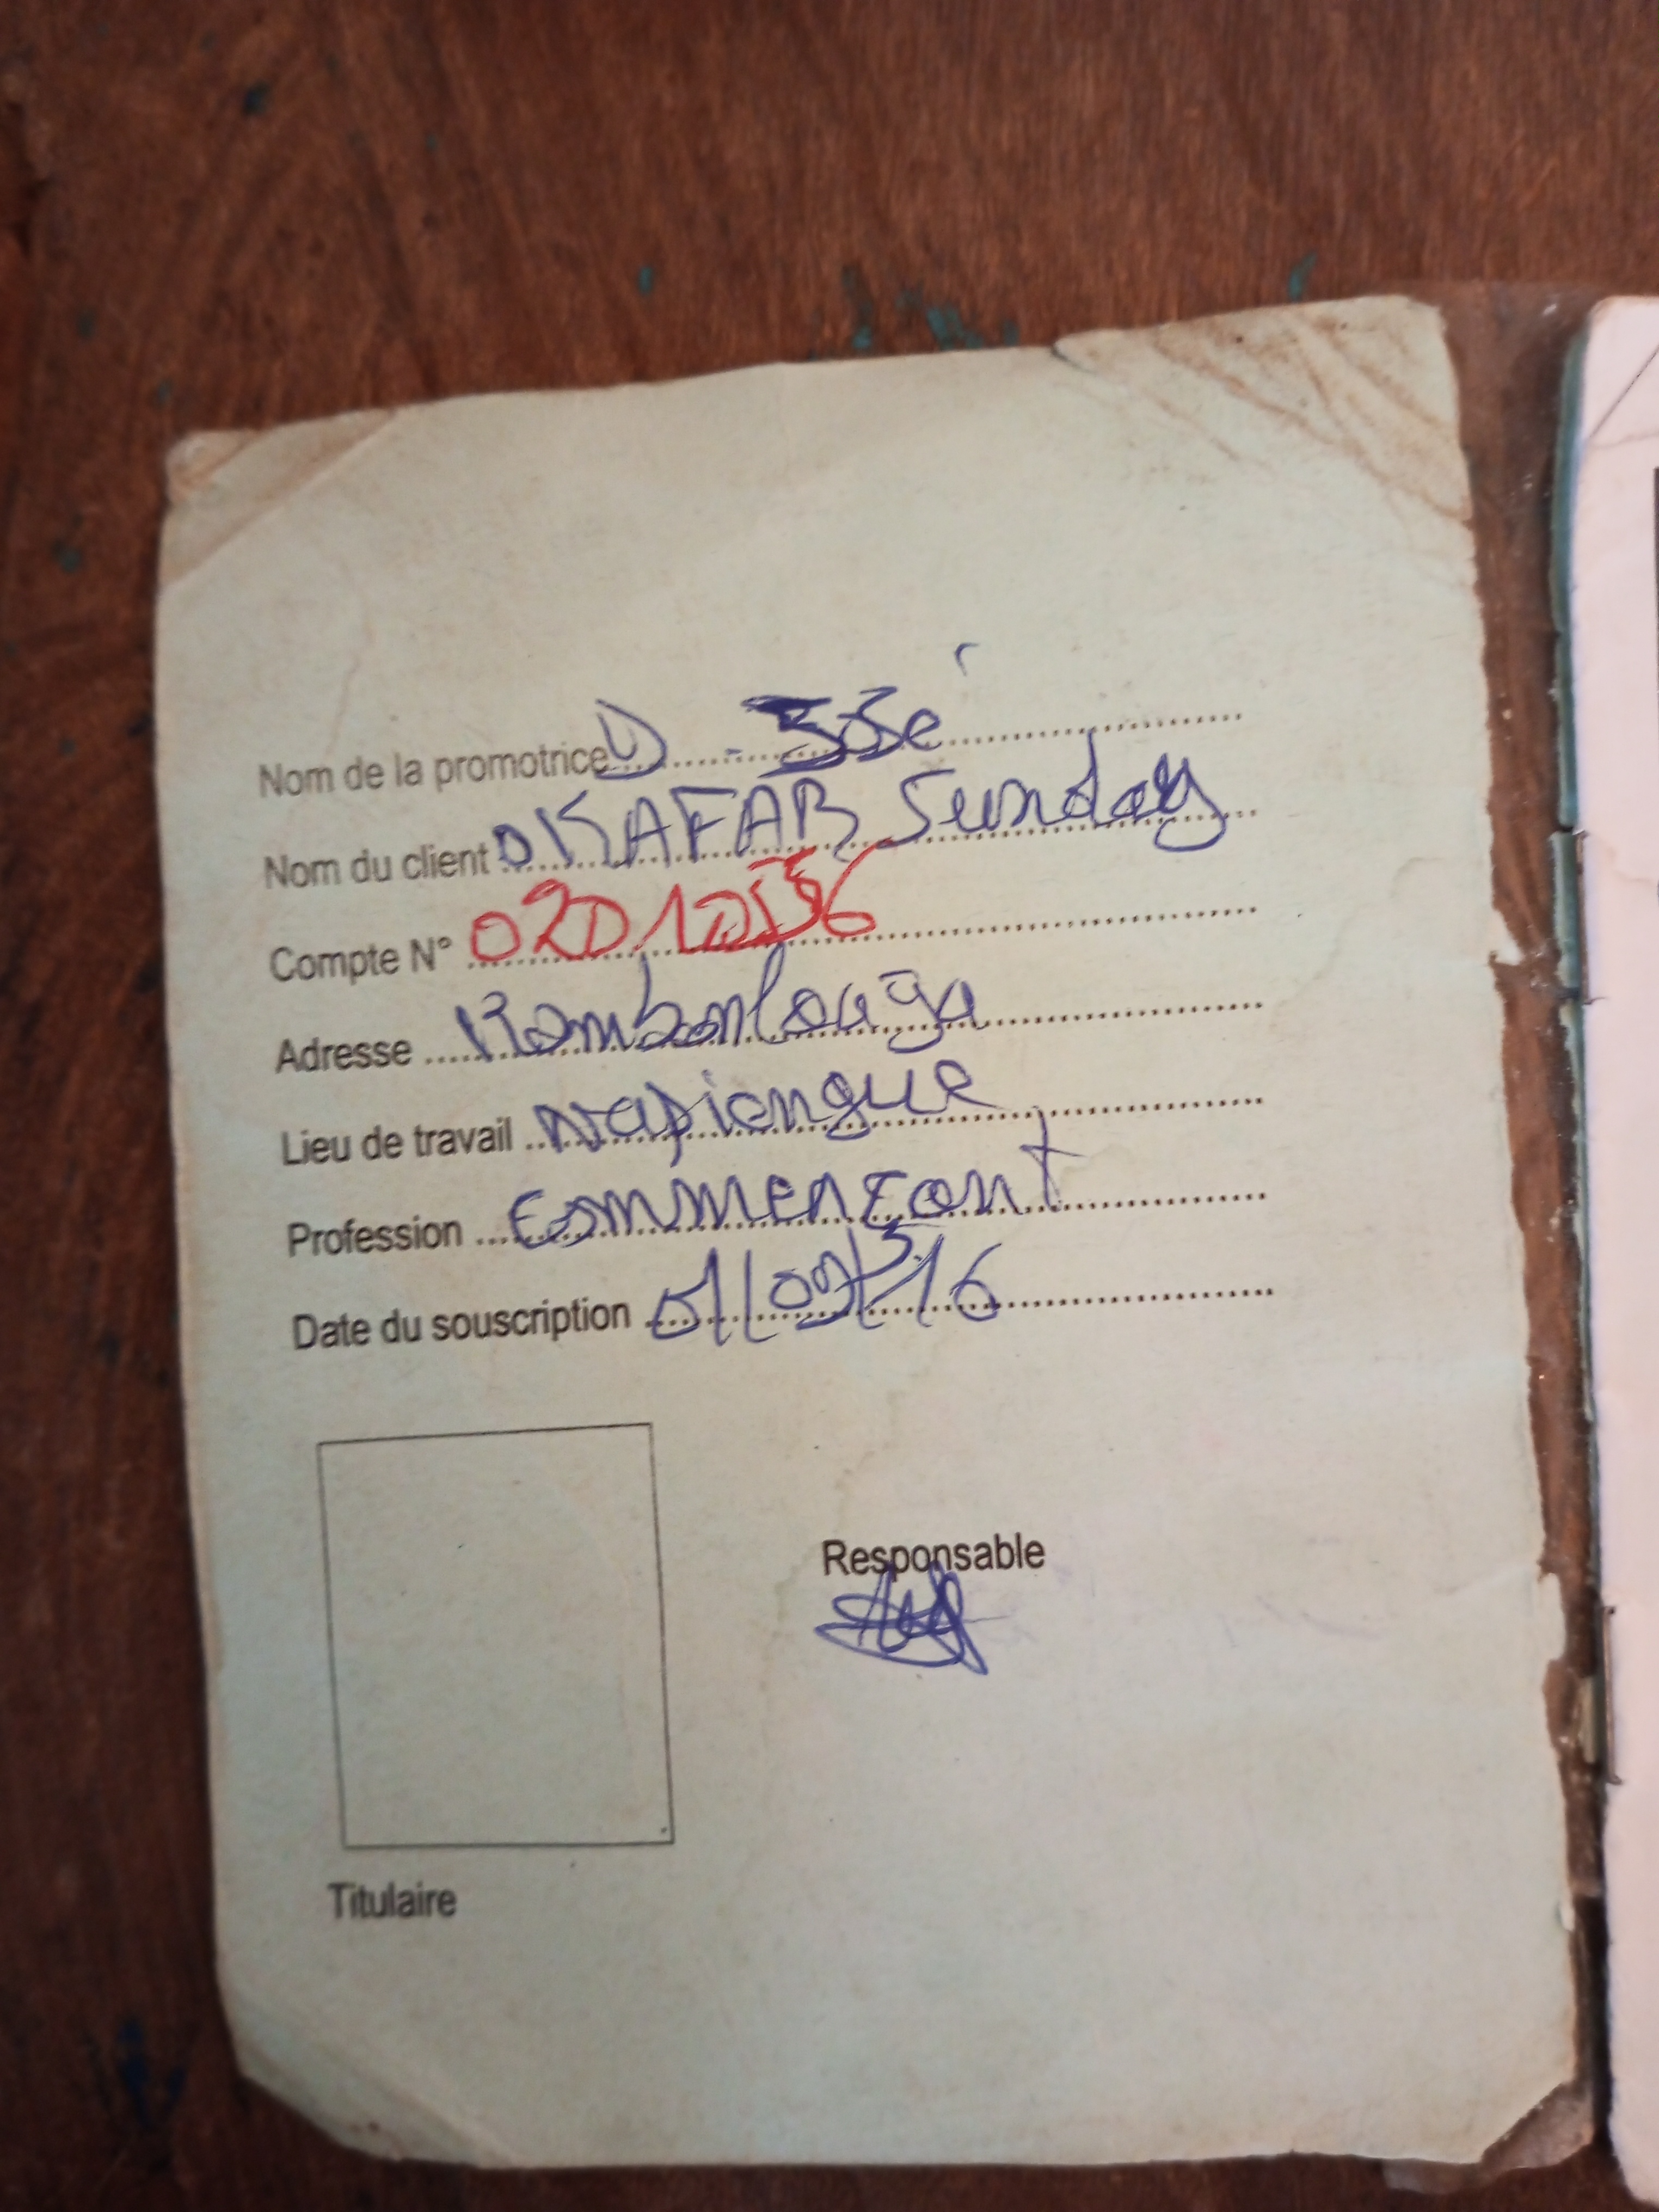 Nom de la promotrice D - José
Nom du client OKAFAR Sunday
Compte N° 0201056
Adresse Kombonlouaga
Lieu de travail Napiengue
Profession Commerçant
Date du souscription 01/09/16
Responsable
Titulaire